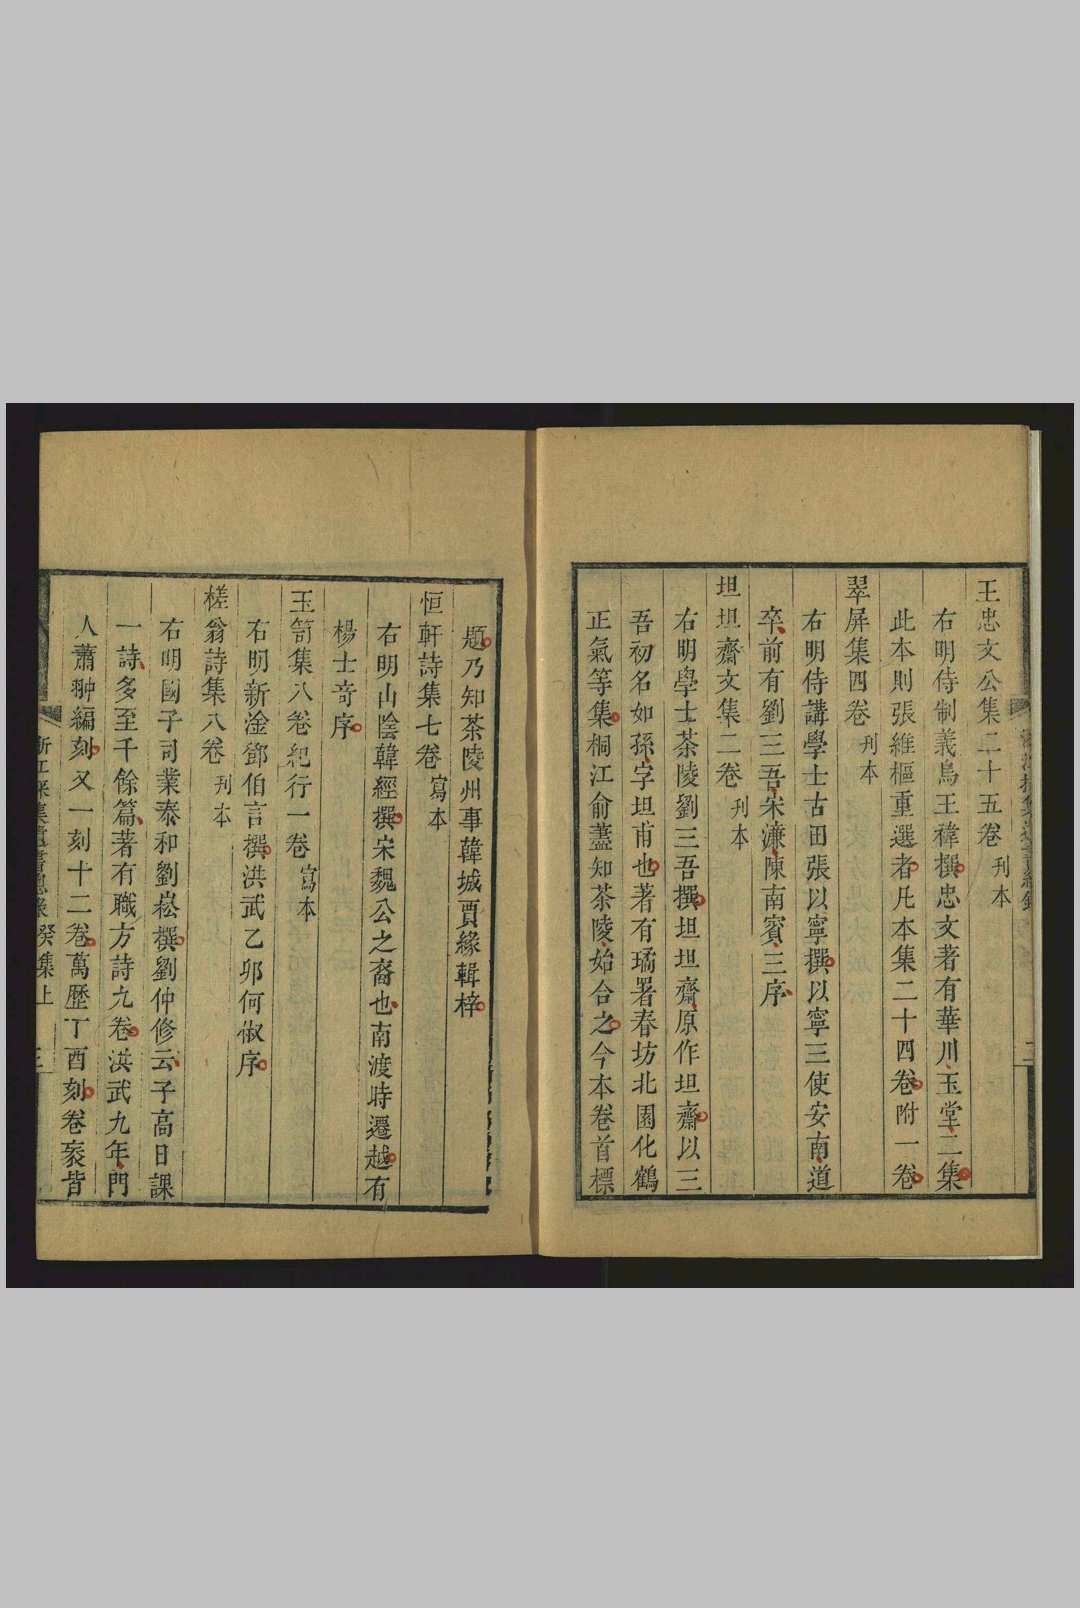 王忠文公集二十五卷 刋本
右明侍制義烏王褘撰忠文著有華川玉堂二集
此本則張維樞重選者凡本集二十四卷附一卷
翠屏集四卷 刋本
右明侍講學士古田張以寧撰以寧三使安南道
卒前有劉三吾宋濂陳南賓三序
坦坦齋文集二卷 刋本
右明學士茶陵劉三吾撰坦坦齋原作坦齋以三
吾初名如孫字坦甫也著有璚署春坊北園化鶴
正氣等集桐江俞藎知茶陵始合之今本卷首標
題乃知茶陵州事韓城賈緣輯梓
恒軒詩集七卷 寫本
右明山陰韓經撰宋魏公之裔也南渡時遷越有
楊士竒序
玉笥集八卷紀行一卷 寫本
右明新淦鄧伯言撰洪武乙卯何俶序
槎翁詩集八卷 刋本
右明國子司業泰和劉崧撰劉仲修云子高日課
一詩多至千餘篇著有職方詩九卷洪武九年門
人蕭翀編刻又一刻十二卷萬歷丁酉刻卷袠皆
浙江採集遺書總錄 癸集上 三